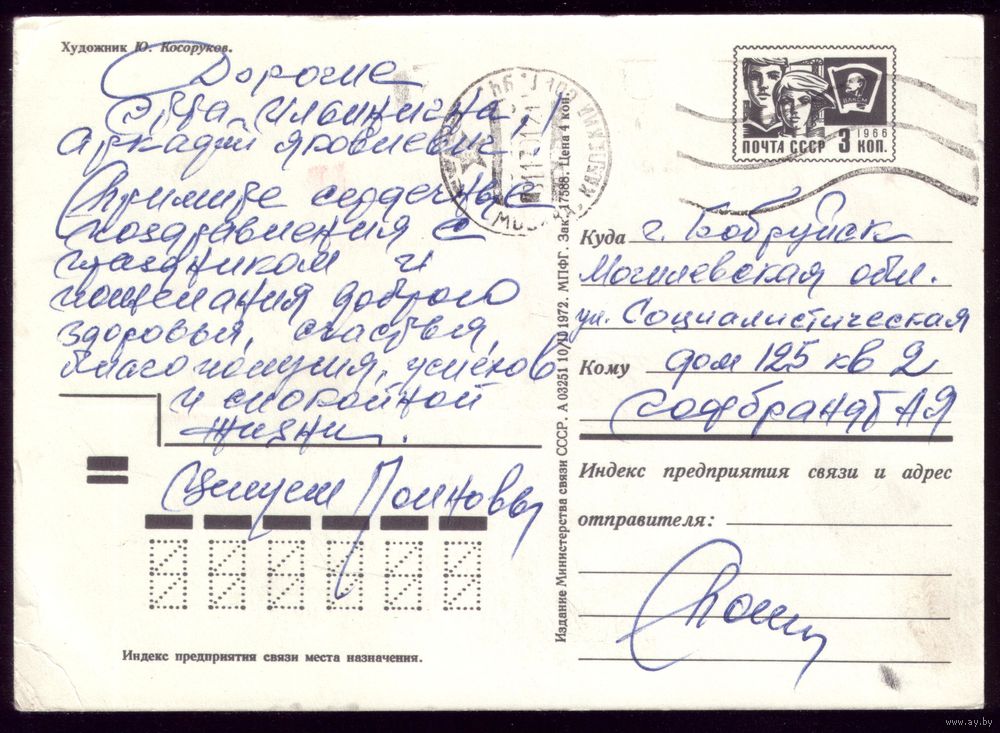 Художник Ю. Косоруков.
Дорогие
Эдда Ильинична,
Аркадий Яковлевич!
Примите сердечные
поздравления с
праздником и
пожелания доброго
здоровья, счастья,
благополучия, успехов
и спокойной
жизни.
Целуем
Индекс предприятия связи места назначения.
Издание Министерства связи СССР. А 03251 10/II 1972. МПФГ. Зак. 17588. Цена 4 коп.
МОСКВА
ПОЧТА СССР 3 КОП.
1966
ВЛКСМ
Куда г. Бобруйск
Могилевская обл.
ул. Социалистическая
Кому дом 125 кв 2
Индекс предприятия связи и адрес
отправителя:
www.ay.by